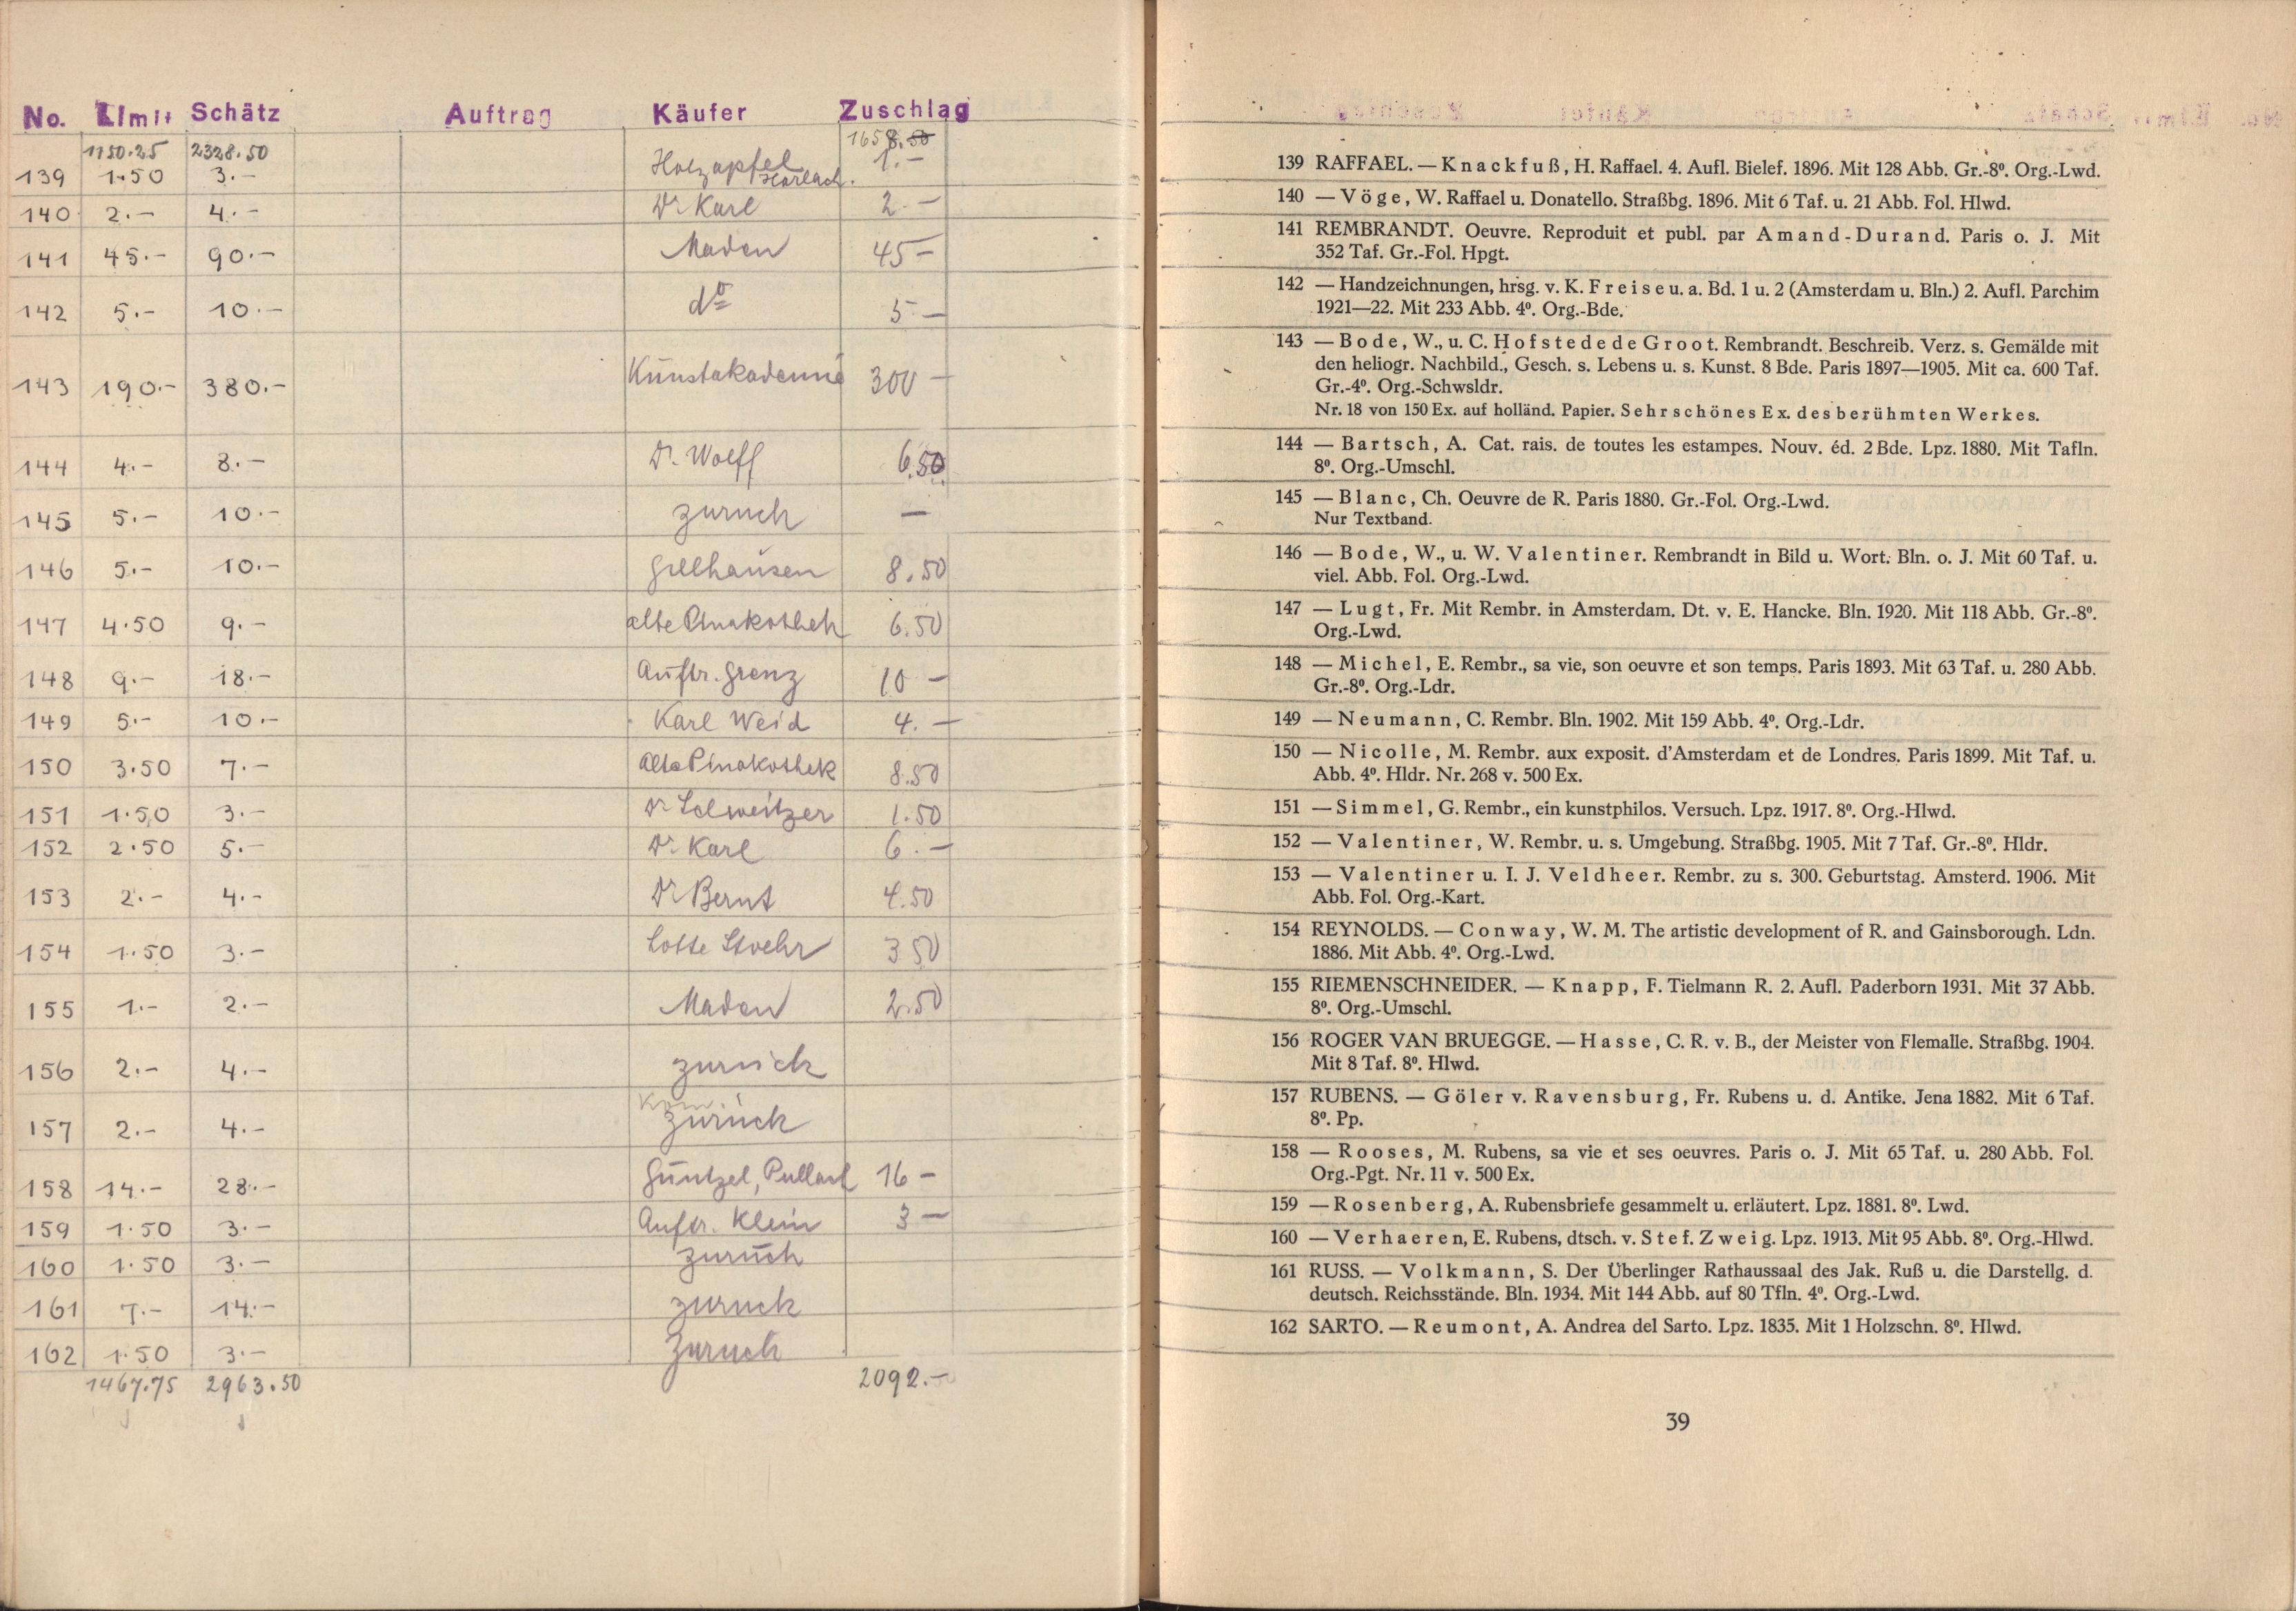 No. Limit Schätz Auftrag Käufer Zuschlag
1150.25 2328.50 1658.50
139 1.50 3.- Holzapfel Harlach. 1.-
140 2.- 4.- Dr Karl 2.-
141 45.- 90.- Maden 45-
142 5.- 10.- do 5-
143 190.- 380.- Kunstakademie 300-
144 4.- 8.- Dr. Wolff 6.50
145 5.- 10.- zurück -
146 5.- 10.- Gellhausen 8.50
147 4.50 9.- alte Pinakothek 6.50
148 9.- 18.- Auftr. Grenz 10-
149 5.- 10.- Karl Weid 4.-
150 3.50 7.- Alte Pinakothek 8.50
151 1.50 3.- Dr Schweitzer 1.50
152 2.50 5.- Dr. Karl 6.-
153 2.- 4.- Dr Bernt 4.50
154 1.50 3.- Lotte Stoehr 3 50
155 1.- 2.- Maden 2.50
156 2.- 4.- zurück
157 2.- 4.- zurück
158 14.- 28.- Güntzel, Pullach 16-
159 1.50 3.- Auftr. Klein 3-
160 1.50 3.- zurück
161 7.- 14.- zurück
162 1.50 3.- zurück
1467.75 2963.50 2092.-
139 RAFFAEL. — Knackfuß, H. Raffael. 4. Aufl. Bielef. 1896. Mit 128 Abb. Gr.-8º. Org.-Lwd.
140 — Vöge, W. Raffael u. Donatello. Straßbg. 1896. Mit 6 Taf. u. 21 Abb. Fol. Hlwd.
141 REMBRANDT. Oeuvre. Reproduit et publ. par Amand-Durand. Paris o. J. Mit
352 Taf. Gr.-Fol. Hpgt.
142 — Handzeichnungen, hrsg. v. K. Freise u. a. Bd. 1 u. 2 (Amsterdam u. Bln.) 2. Aufl. Parchim
1921—22. Mit 233 Abb. 4º. Org.-Bde.
143 — Bode, W., u. C. Hofstede de Groot. Rembrandt. Beschreib. Verz. s. Gemälde mit
den heliogr. Nachbild., Gesch. s. Lebens u. s. Kunst. 8 Bde. Paris 1897—1905. Mit ca. 600 Taf.
Gr.-4º. Org.-Schwsldr.
Nr. 18 von 150 Ex. auf holländ. Papier. Sehr schönes Ex. des berühmten Werkes.
144 — Bartsch, A. Cat. rais. de toutes les estampes. Nouv. éd. 2 Bde. Lpz. 1880. Mit Tafln.
8º. Org.-Umschl.
145 — Blanc, Ch. Oeuvre de R. Paris 1880. Gr.-Fol. Org.-Lwd.
Nur Textband.
146 — Bode, W., u. W. Valentiner. Rembrandt in Bild u. Wort. Bln. o. J. Mit 60 Taf. u.
viel. Abb. Fol. Org.-Lwd.
147 — Lugt, Fr. Mit Rembr. in Amsterdam. Dt. v. E. Hancke. Bln. 1920. Mit 118 Abb. Gr.-8º.
Org.-Lwd.
148 — Michel, E. Rembr., sa vie, son oeuvre et son temps. Paris 1893. Mit 63 Taf. u. 280 Abb.
Gr.-8º. Org.-Ldr.
149 — Neumann, C. Rembr. Bln. 1902. Mit 159 Abb. 4º. Org.-Ldr.
150 — Nicolle, M. Rembr. aux exposit. d'Amsterdam et de Londres. Paris 1899. Mit Taf. u.
Abb. 4º. Hldr. Nr. 268 v. 500 Ex.
151 — Simmel, G. Rembr., ein kunstphilos. Versuch. Lpz. 1917. 8º. Org.-Hlwd.
152 — Valentiner, W. Rembr. u. s. Umgebung. Straßbg. 1905. Mit 7 Taf. Gr.-8º. Hldr.
153 — Valentiner u. I. J. Veldheer. Rembr. zu s. 300. Geburtstag. Amsterd. 1906. Mit
Abb. Fol. Org.-Kart.
154 REYNOLDS. — Conway, W. M. The artistic development of R. and Gainsborough. Ldn.
1886. Mit Abb. 4º. Org.-Lwd.
155 RIEMENSCHNEIDER. — Knapp, F. Tielmann R. 2. Aufl. Paderborn 1931. Mit 37 Abb.
8º. Org.-Umschl.
156 ROGER VAN BRUEGGE. — Hasse, C. R. v. B., der Meister von Flemalle. Straßbg. 1904.
Mit 8 Taf. 8º. Hlwd.
157 RUBENS. — Göler v. Ravensburg, Fr. Rubens u. d. Antike. Jena 1882. Mit 6 Taf.
8º. Pp.
158 — Rooses, M. Rubens, sa vie et ses oeuvres. Paris o. J. Mit 65 Taf. u. 280 Abb. Fol.
Org.-Pgt. Nr. 11 v. 500 Ex.
159 — Rosenberg, A. Rubensbriefe gesammelt u. erläutert. Lpz. 1881. 8º. Lwd.
160 — Verhaeren, E. Rubens, dtsch. v. Stef. Zweig. Lpz. 1913. Mit 95 Abb. 8º. Org.-Hlwd.
161 RUSS. — Volkmann, S. Der Überlinger Rathaussaal des Jak. Ruß u. die Darstellg. d.
deutsch. Reichsstände. Bln. 1934. Mit 144 Abb. auf 80 Tfln. 4º. Org.-Lwd.
162 SARTO. — Reumont, A. Andrea del Sarto. Lpz. 1835. Mit 1 Holzschn. 8º. Hlwd.
39